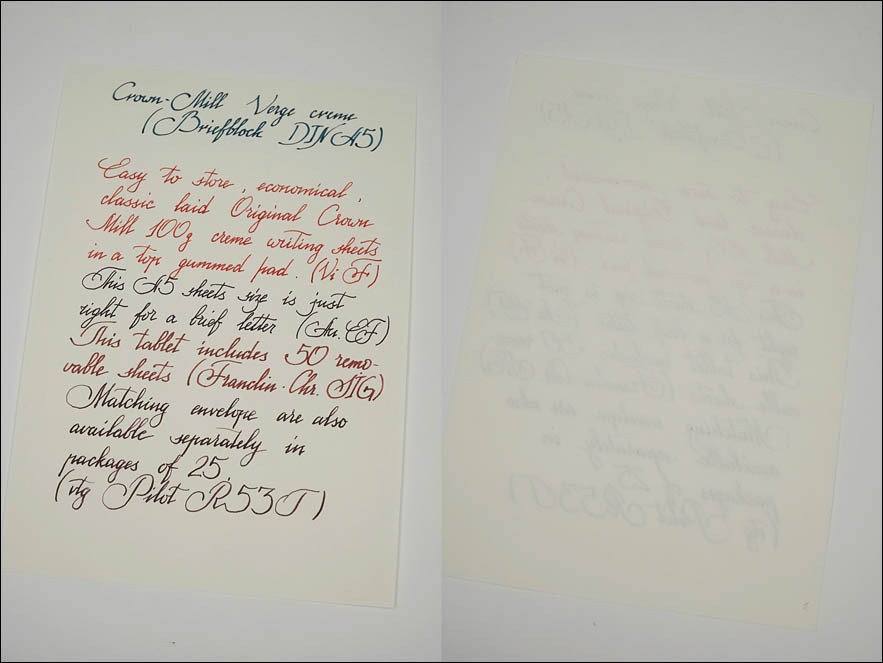 Crown-Mill Verge creme
(Briefblock DIN A5)
Easy to store, economical,
classic laid Original Crown
Mill 100g creme writing sheets
in a top gummed pad. (Vi F)
This A5 sheets size is just
right for a brief letter (Au. EF)
This tablet includes 50 remo-
vable sheets (Franclin-Chr. SIG)
Matching envelope are also
available separately in
packages of 25.
(vtg Pilot R53T)